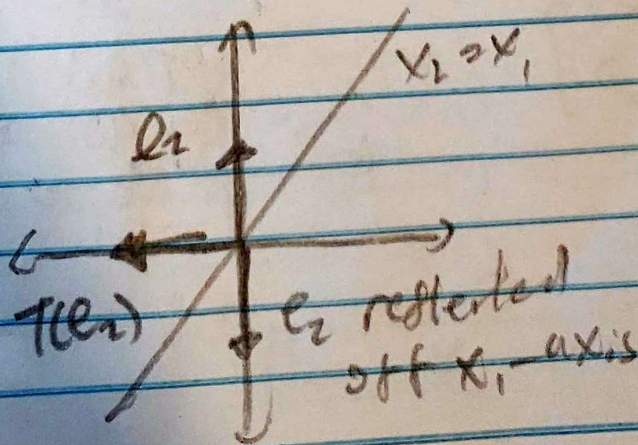 x₂ = x₁
e₂
T(e₂)
e₂ reflected
off x₁-axis